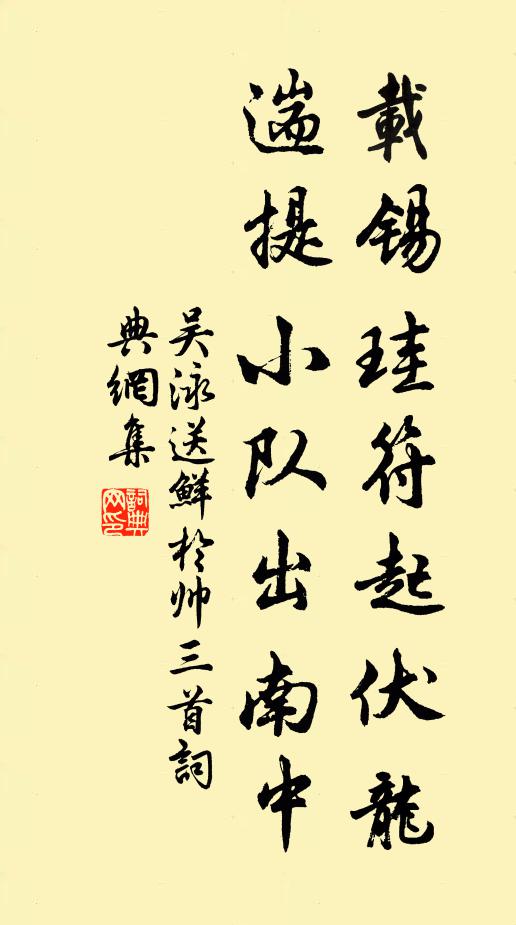 載錫珪符起伏龍
遄提小队出南中
吴泳送鮮於帅三首詞
典網集
詞典网印